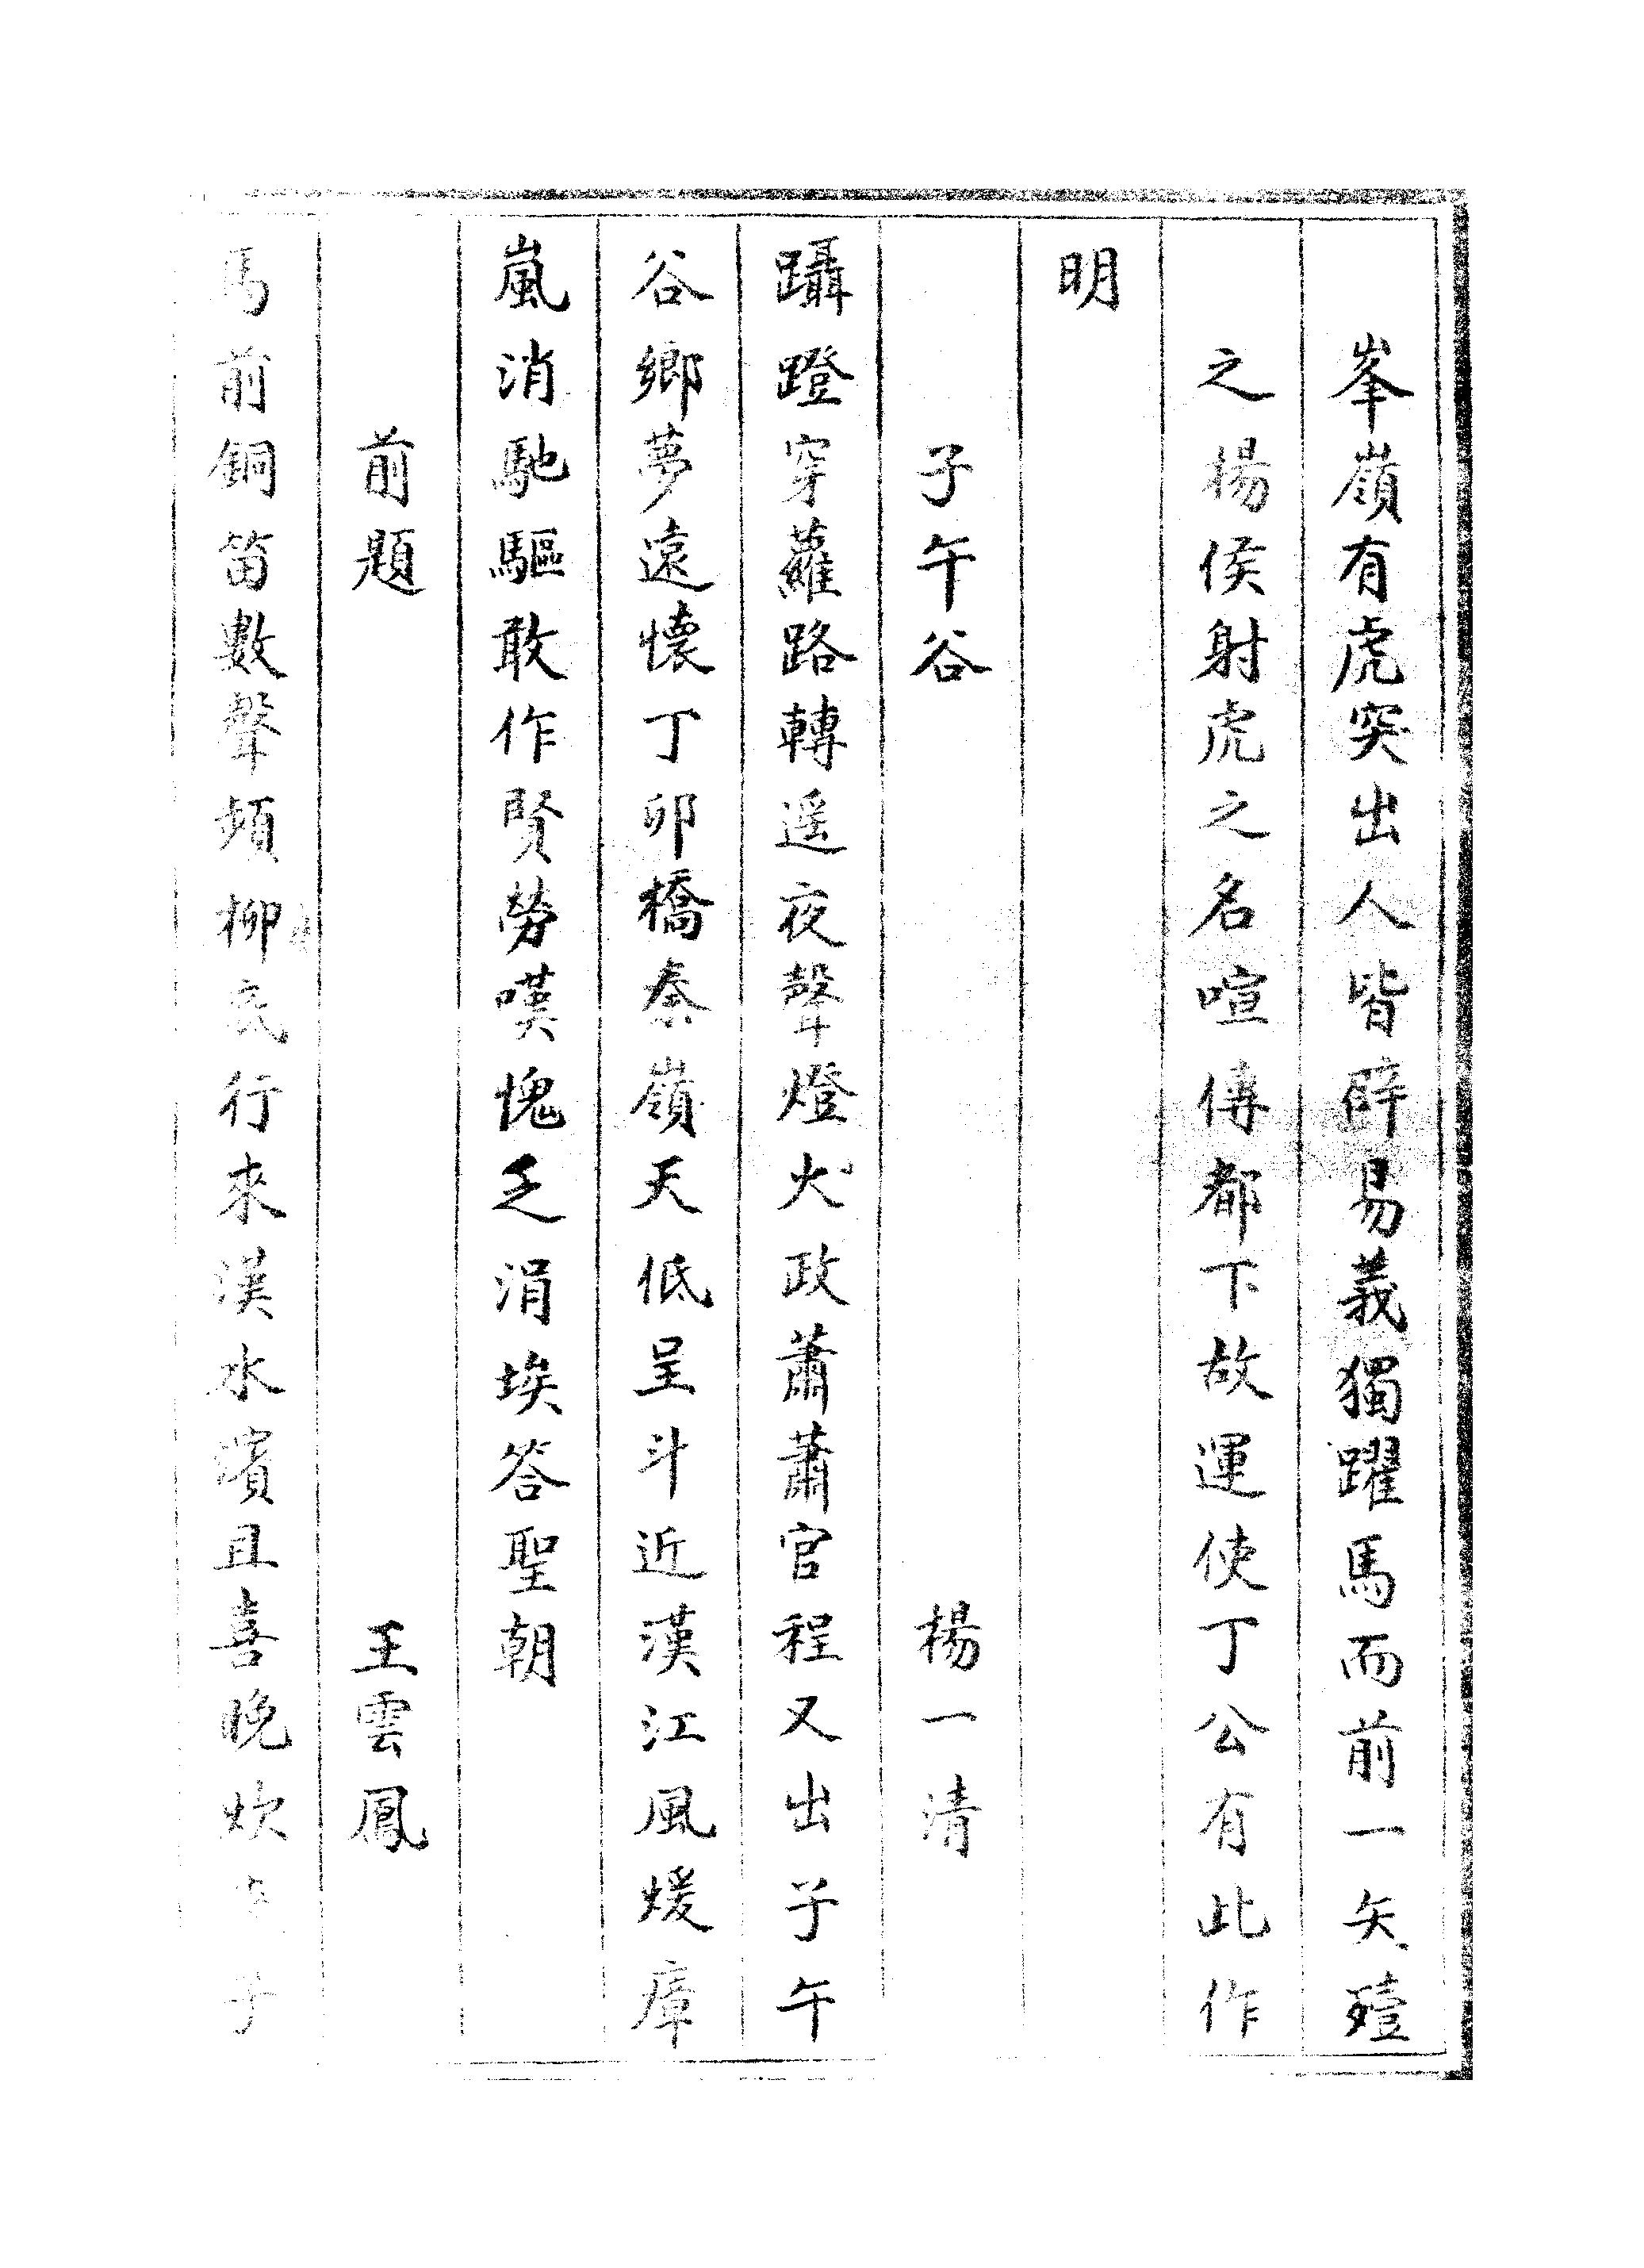 峯嶺有虎突出人皆辟易義獨躍馬而前一矢殪
之楊侯射虎之名喧傳都下故運使丁公有此作
明
子午谷 楊一清
躡蹬穿蘿路轉遥夜聲燈火政蕭蕭官程又出子午
谷鄉夢遠懷丁卯橋秦嶺天低呈斗近漢江風煖瘴
嵐消馳驅敢作賢勞嘆愧乏涓埃答聖朝
前題 王雲鳳
馬前銅笛數聲頻柳 行來漢水濱且喜晚炊 子